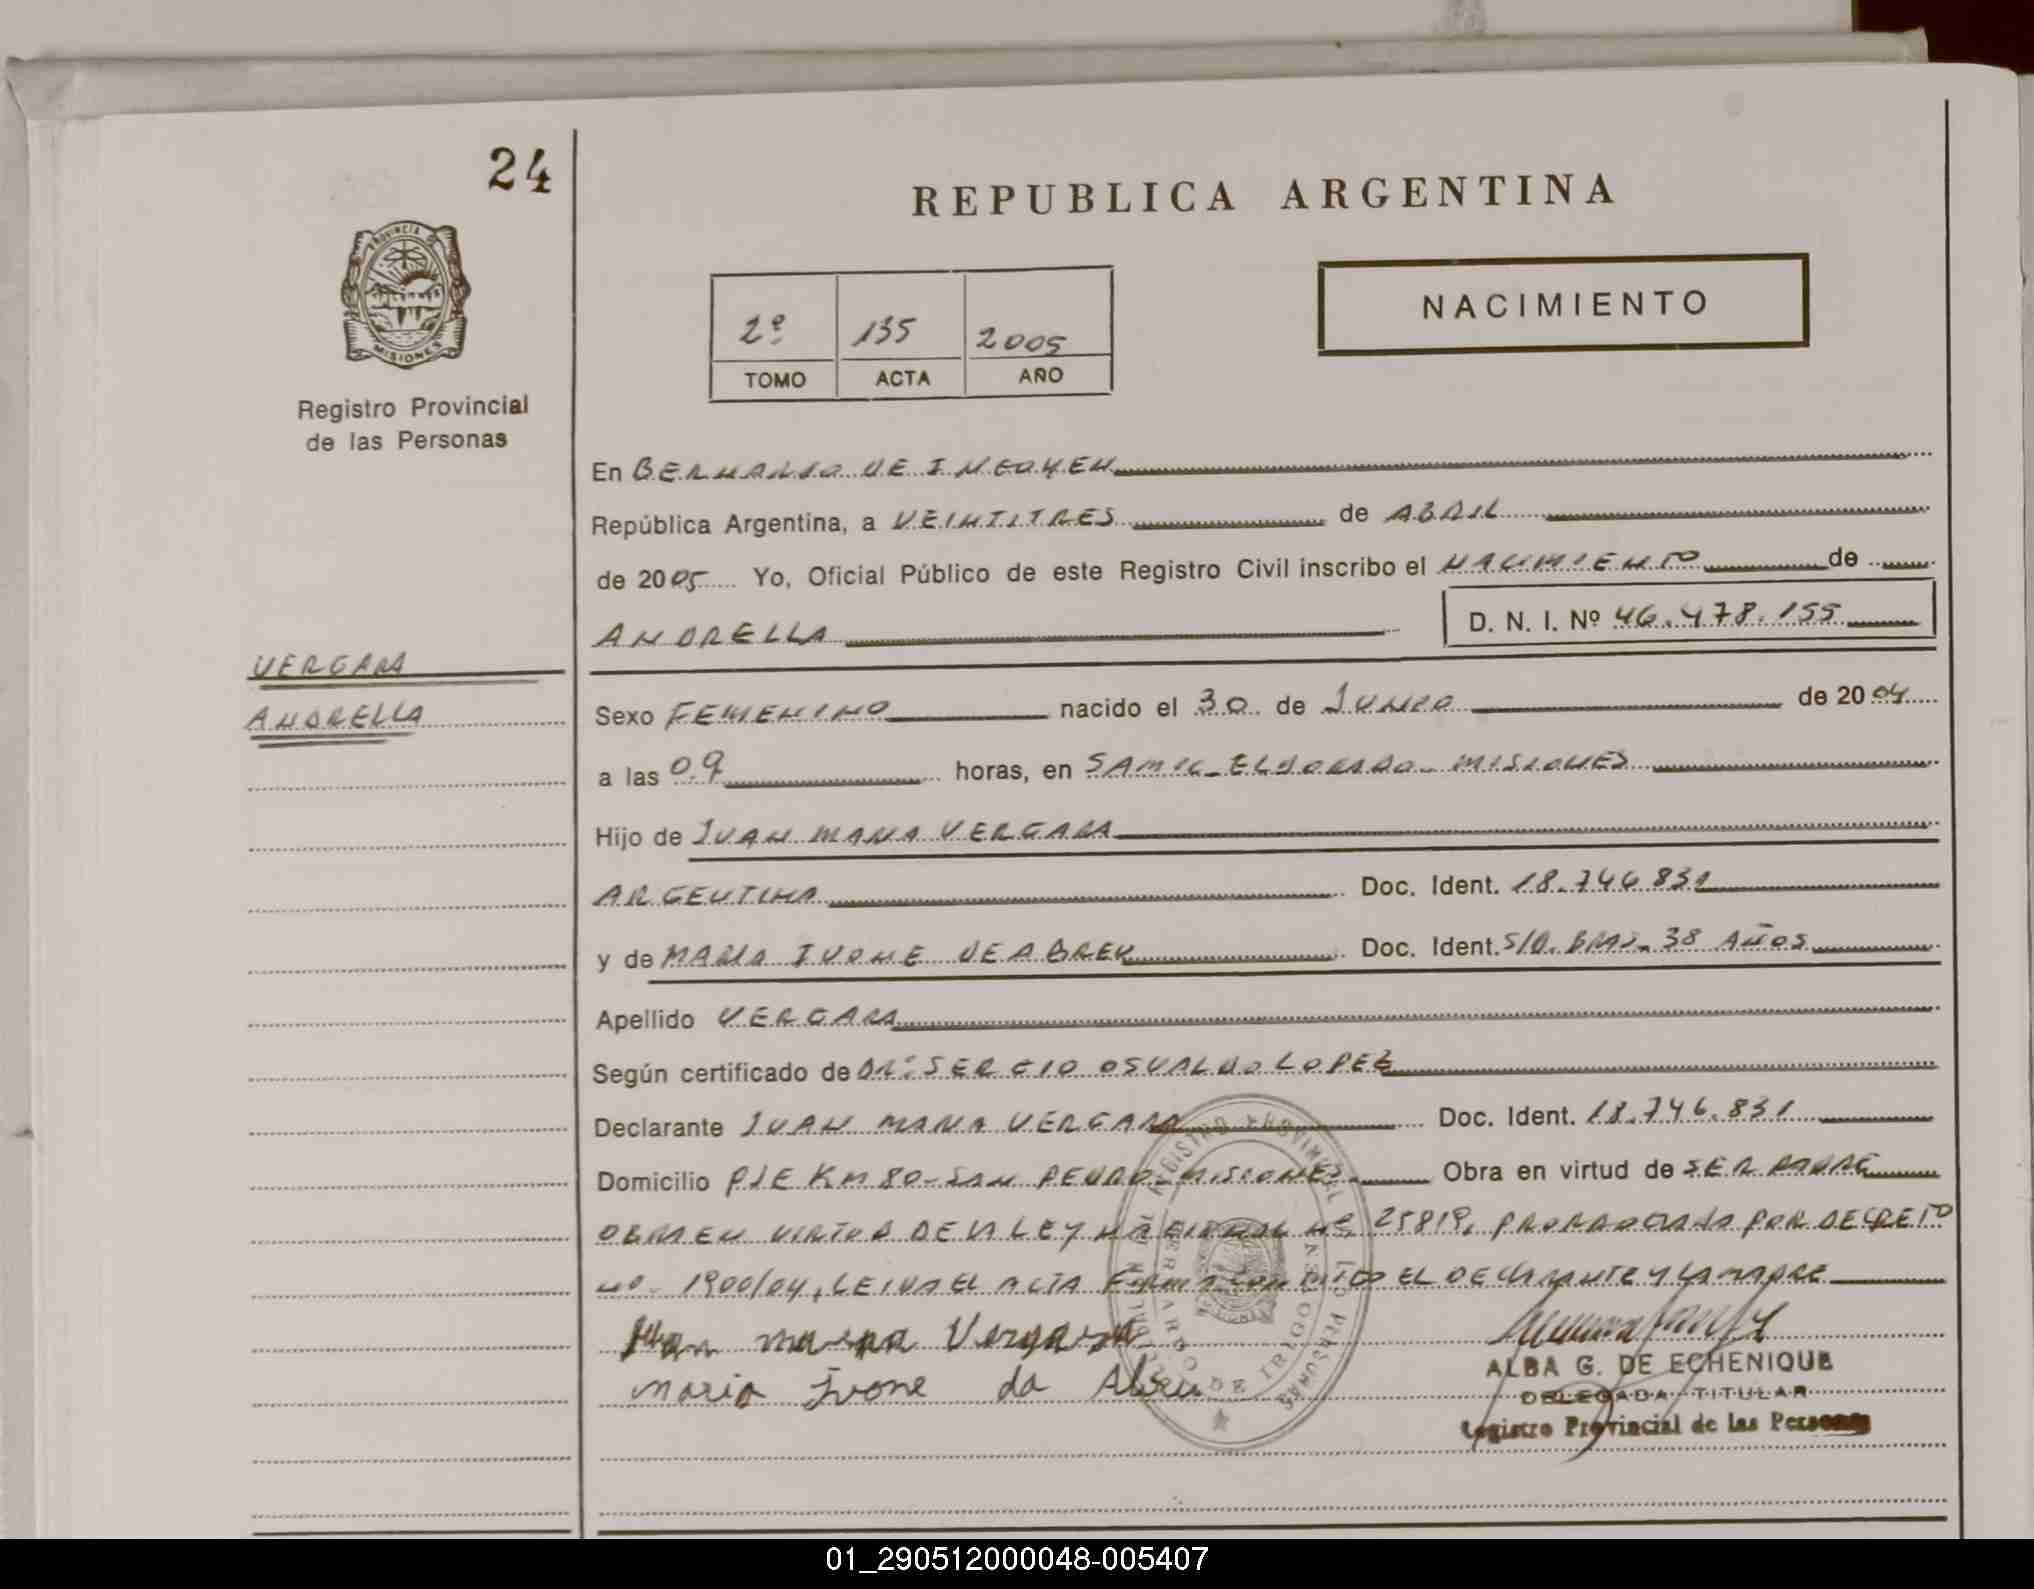 24
REPUBLICA ARGENTINA
PROVINCIA DE
MISIONES
Registro Provincial
de las Personas
NACIMIENTO
2º 135 2005
TOMO ACTA AÑO
En BERNARDO DE IRIGOYEN
República Argentina, a VEINTITRES de ABRIL
de 2005 Yo, Oficial Público de este Registro Civil inscribo el NACIMIENTO de
ANDRELLA D. N. I. Nº 46.478.155
VERGARA
ANDRELLA
Sexo FEMENINO nacido el 30 de JUNIO de 2004
a las 09 horas, en SAMIC. ELDORADO. MISIONES
Hijo de JUAN MARIA VERGARA
ARGENTINA Doc. Ident. 18.746.831
y de MARIA IVONE DE ABREU Doc. Ident. S/D. BRAS. 38 AÑOS
Apellido VERGARA
Según certificado de DR. SERGIO OSVALDO LOPEZ
Declarante JUAN MARIA VERGARA Doc. Ident. 18.746.831
Domicilio PJE KM 80-SAN PEDRO-MISIONES. Obra en virtud de SER PADRE
OBRA EN VIRTUD DE LA LEY NACIONAL Nº 25819, PRORROGADA POR DECRETO
Nº 1900/04, LEIDA EL ACTA FIRMAN CONMIGO EL DECLARANTE Y LA MADRE
Juan maria Vergara
maria Ivone da Abreu
REGISTRO PROVINCIAL DE LAS PERSONAS
BERNARDO DE IRIGOYEN
ALBA G. DE ECHENIQUE
DELEGADA TITULAR
Registro Provincial de las Personas
01_290512000048-005407